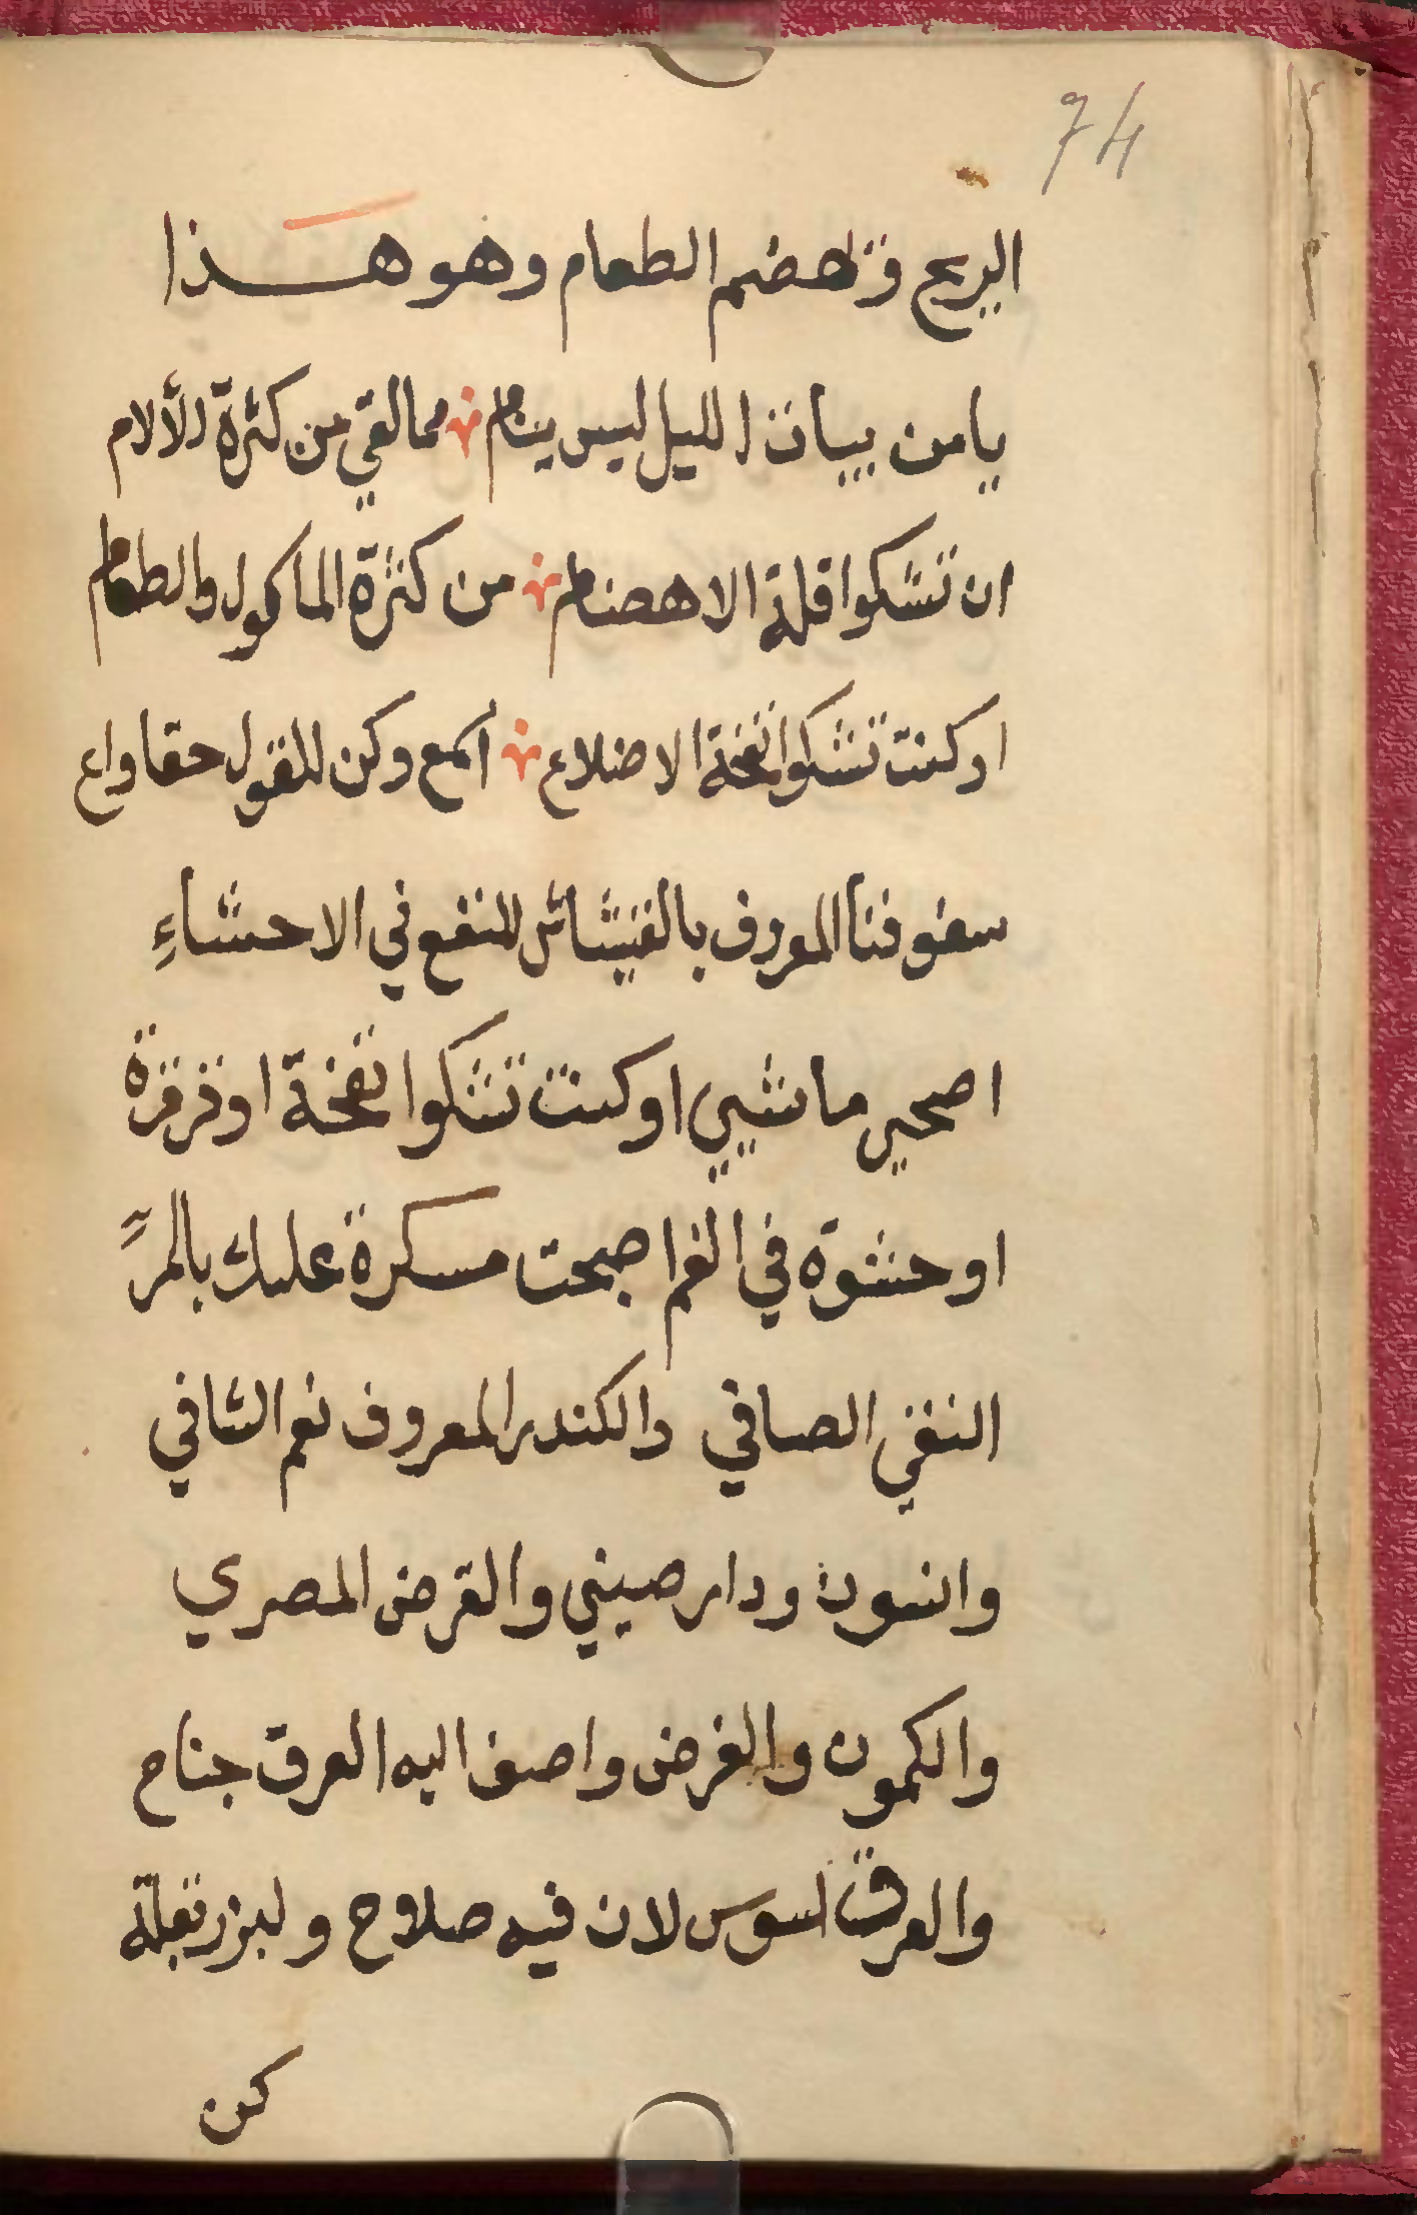 74
الريح وتهضم الطعام وهو هذا
يا من يبات الليل ليس ينام ممالقي من كثرة الألام
ان تشكوا قلة الاهضام من كثرة الماكول والطعام
او كنت تشكوا نفخة الاضلاع اسمع وكن للقول حقا واع
سفوفنا المعروف بالفشاش للنفع في الاحشاءِ
اصحي ماشيي او كنت تشكوا نفخة او قرقرة
او حشوة في الفم اصبحت مسكرة عليك بالمر
النقي الصافي والكندر المعروف نعم الشافي
وانسون ودارصيني والقرض المصري
والكمون والقرض واضف اليه العرق جناح
والعرق السوس لان فيه صلاح ولبزر بقلة
كن